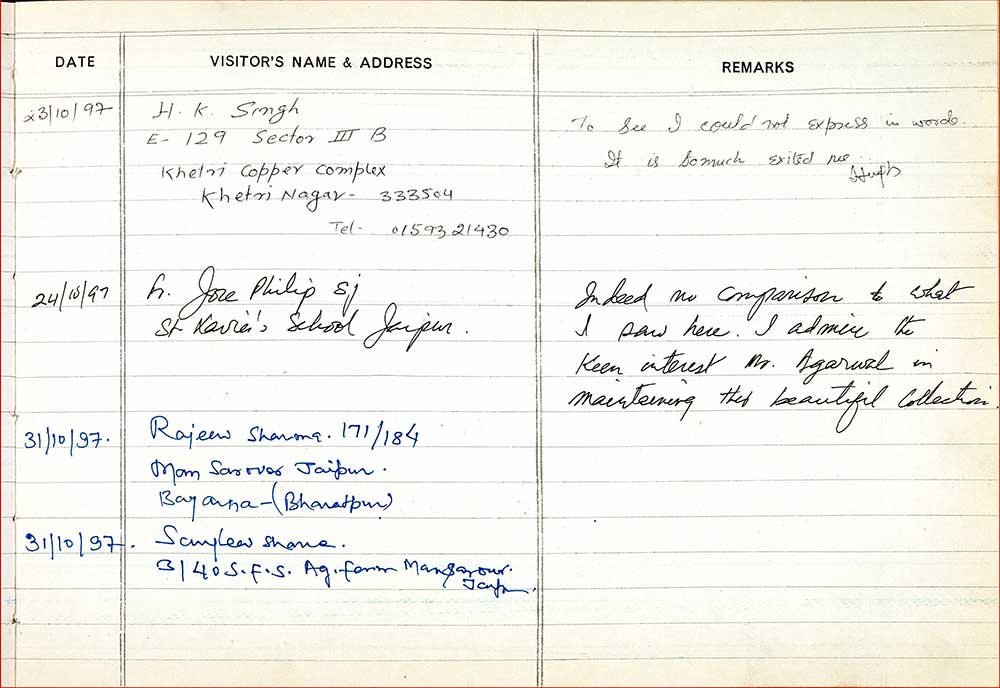 DATE VISITOR'S NAME & ADDRESS REMARKS
23/10/97 H. K. Singh
E- 129 Sector III B
Khetri Copper Complex
Khetri Nagar- 333504
Tel- 01593 21430
To see I could not express in words.
It is somuch exited me
24/10/97 Fr. Jose Philip sj
St Xavier's School Jaipur.
Indeed no comparison to what
I saw here. I admire the
keen interest Mr. Agarwal in
maintaining this beautiful collection.
31/10/97. Rajeev Sharma. 171/184
Man Sarover Jaipur.
Bayana-(Bharatpur)
31/10/97. Sanjeev Sharma.
3/40 S.F.S. Ag. farm Mansarover.
Jaipur